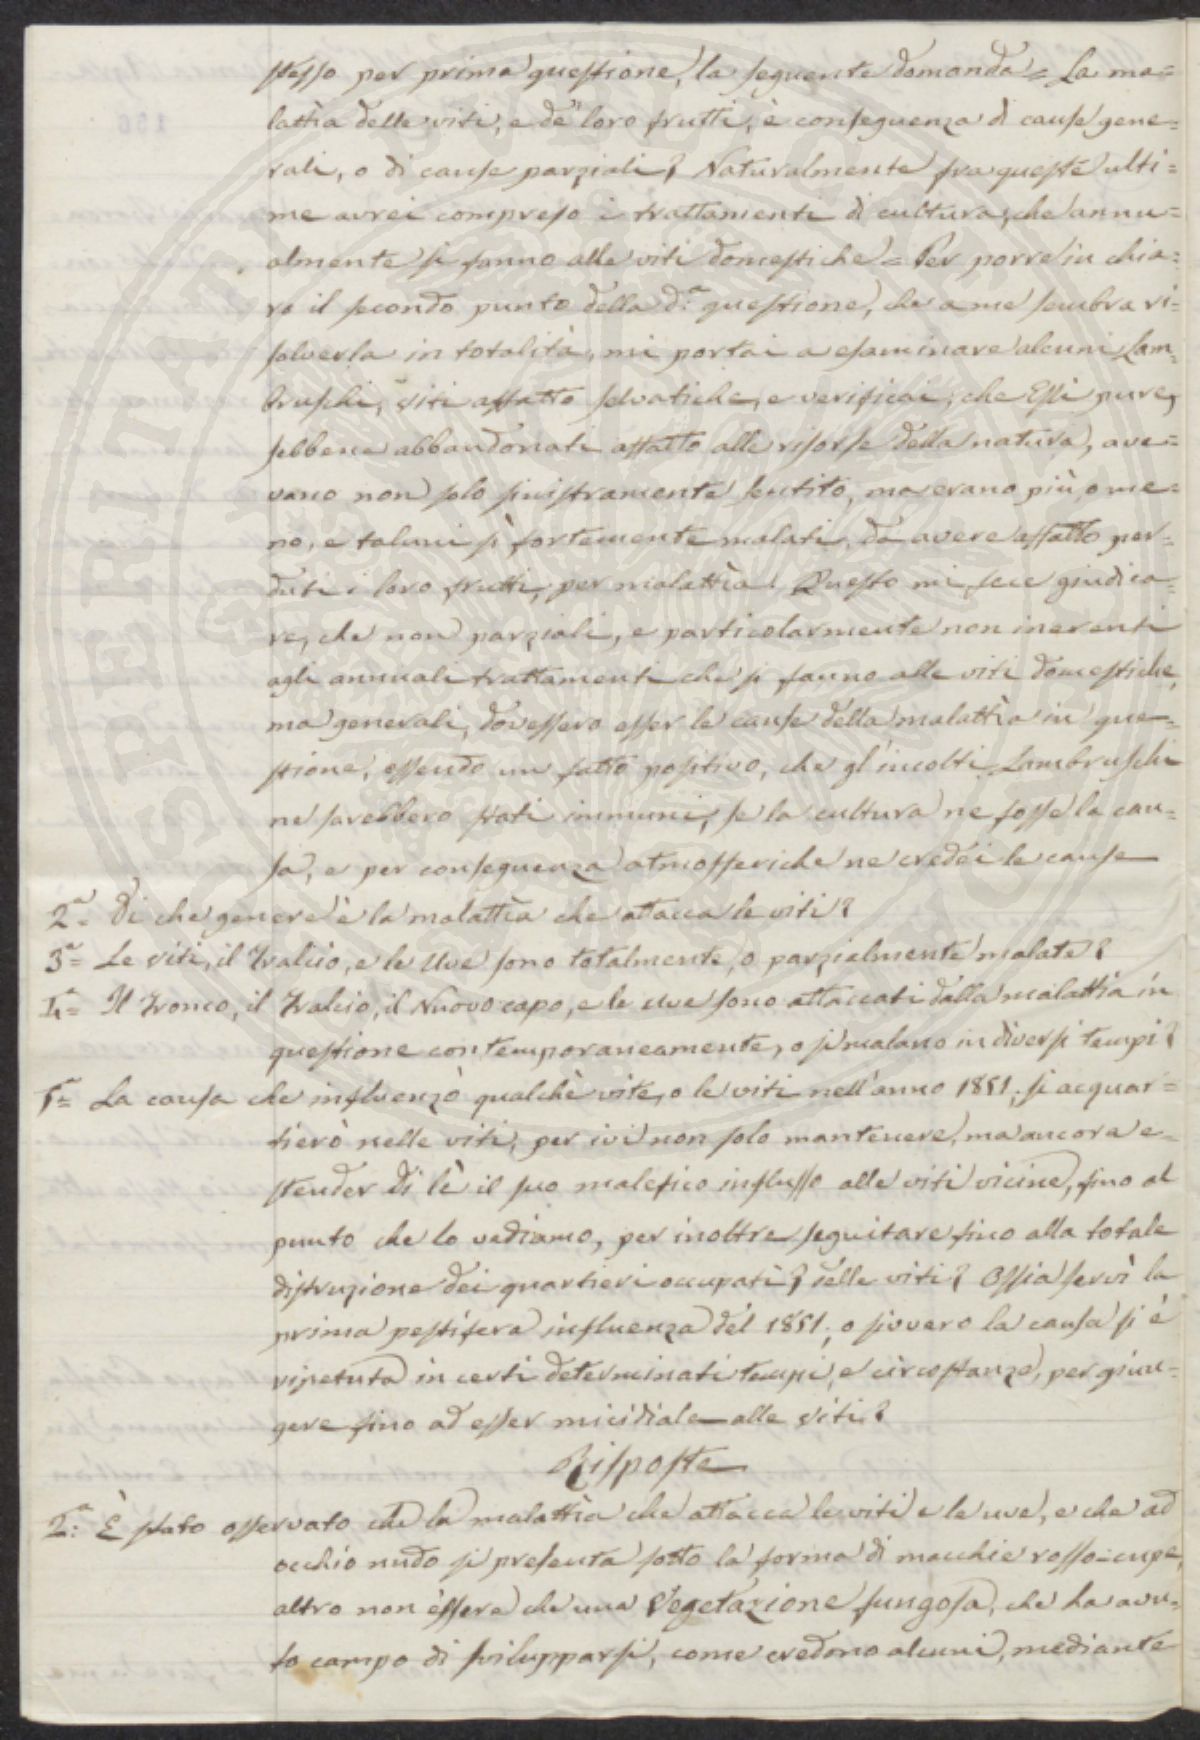 stesso per prima questione, la seguente domanda = La ma=
lattia delle viti, e de' loro frutti, è conseguenza di cause gene=
rali, o di cause parziali? Naturalmente fra queste ulti=
me avrei compreso i trattamenti di cultura, che annu=
almente si fanno alle viti domestiche = Per porre in chia=
ro il secondo punto della d.ª questione, che a me sembra ri=
solverla in totalità, mi portai a esaminare alcuni Lam=
bruschi, viti affatto selvatiche, e verificai, che Essi pure,
sebbene abbandonati affatto alle risorse della natura, ave=
vano non solo sinistramente sentito, ma erano più, o me=
no, e taluni sì fortemente malati, da avere affatto per=
duti i loro frutti, per malattia. Questo mi fece giudica=
re, che non parziali, e particolarmente non inerenti
agli annuali trattamenti che si fanno alle viti domestiche,
ma generali, dovessero esser le cause della malattia in que=
stione, essendo un fatto positivo, che gl'incolti Lambruschi
ne sarebbero stati immuni, se la cultura ne fosse la cau=
sa, e per conseguenza atmosferiche ne credei le cause
2ª= Di che genere è la malattia che attacca le viti?
3ª= Le viti, il Tralcio, e le Uve sono totalmente, o parzialmente malate?
4ª= Il Tronco, il Tralcio, il Nuovo capo, e le uve sono attaccati dalla malattia in
questione contemporaneamente, o si malano in diversi tempi?
5ª= La causa che influenzò qualche vite, o le viti nell'anno 1851, si acquar=
tierò nelle viti, per ivi non solo mantenere, ma ancora e=
stender di lì il suo malefico influsso alle viti vicine, fino al
punto che lo vediamo, per inoltre seguitare fino alla totale
distruzione dei quartieri occupati? delle viti? Ossia servì la
prima pestifera influenza del 1851, o sivvero la causa si è
ripetuta in certi determinati tempi, e circostanze, per giun=
gere fino ad esser micidiale alle viti?
Risposte
2ª: È stato osservato che la malattia che attacca le viti e le uve, e che ad
occhio nudo si presenta sotto la forma di macchie rosso=cupe,
altro non essere che una Vegetazione fungosa, che ha avu=
to campo di svilupparsi, come credono alcuni, mediante